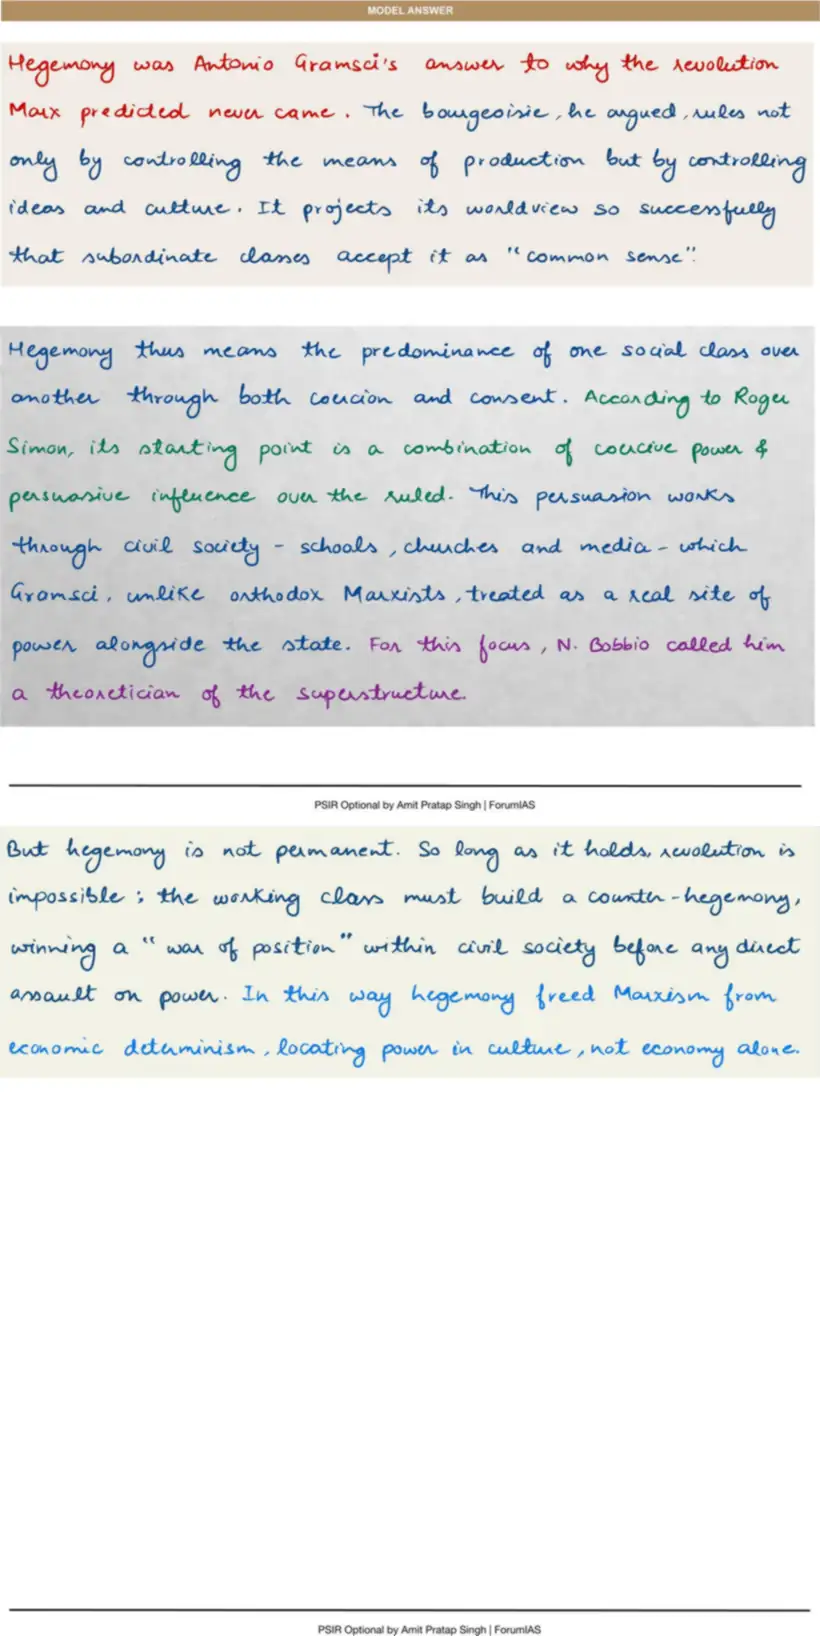 MODEL ANSWER
Hegemony was Antonio Gramsci's answer to why the revolution
Marx predicted never came. The bourgeoisie, he argued, rules not
only by controlling the means of production but by controlling
ideas and culture. It projects its worldview so successfully
that subordinate classes accept it as "common sense".
Hegemony thus means the predominance of one social class over
another through both coercion and consent. According to Roger
Simon, its starting point is a combination of coercive power &
persuasive influence over the ruled. This persuasion works
through civil society - schools, churches and media - which
Gramsci, unlike orthodox Marxists, treated as a real site of
power alongside the state. For this focus, N. Bobbio called him
a theoretician of the superstructure.
PSIR Optional by Amit Pratap Singh | ForumIAS
But hegemony is not permanent. So long as it holds, revolution is
impossible; the working class must build a counter-hegemony,
winning a "war of position" within civil society before any direct
assault on power. In this way hegemony freed Marxism from
economic determinism, locating power in culture, not economy alone.
PSIR Optional by Amit Pratap Singh | ForumIAS